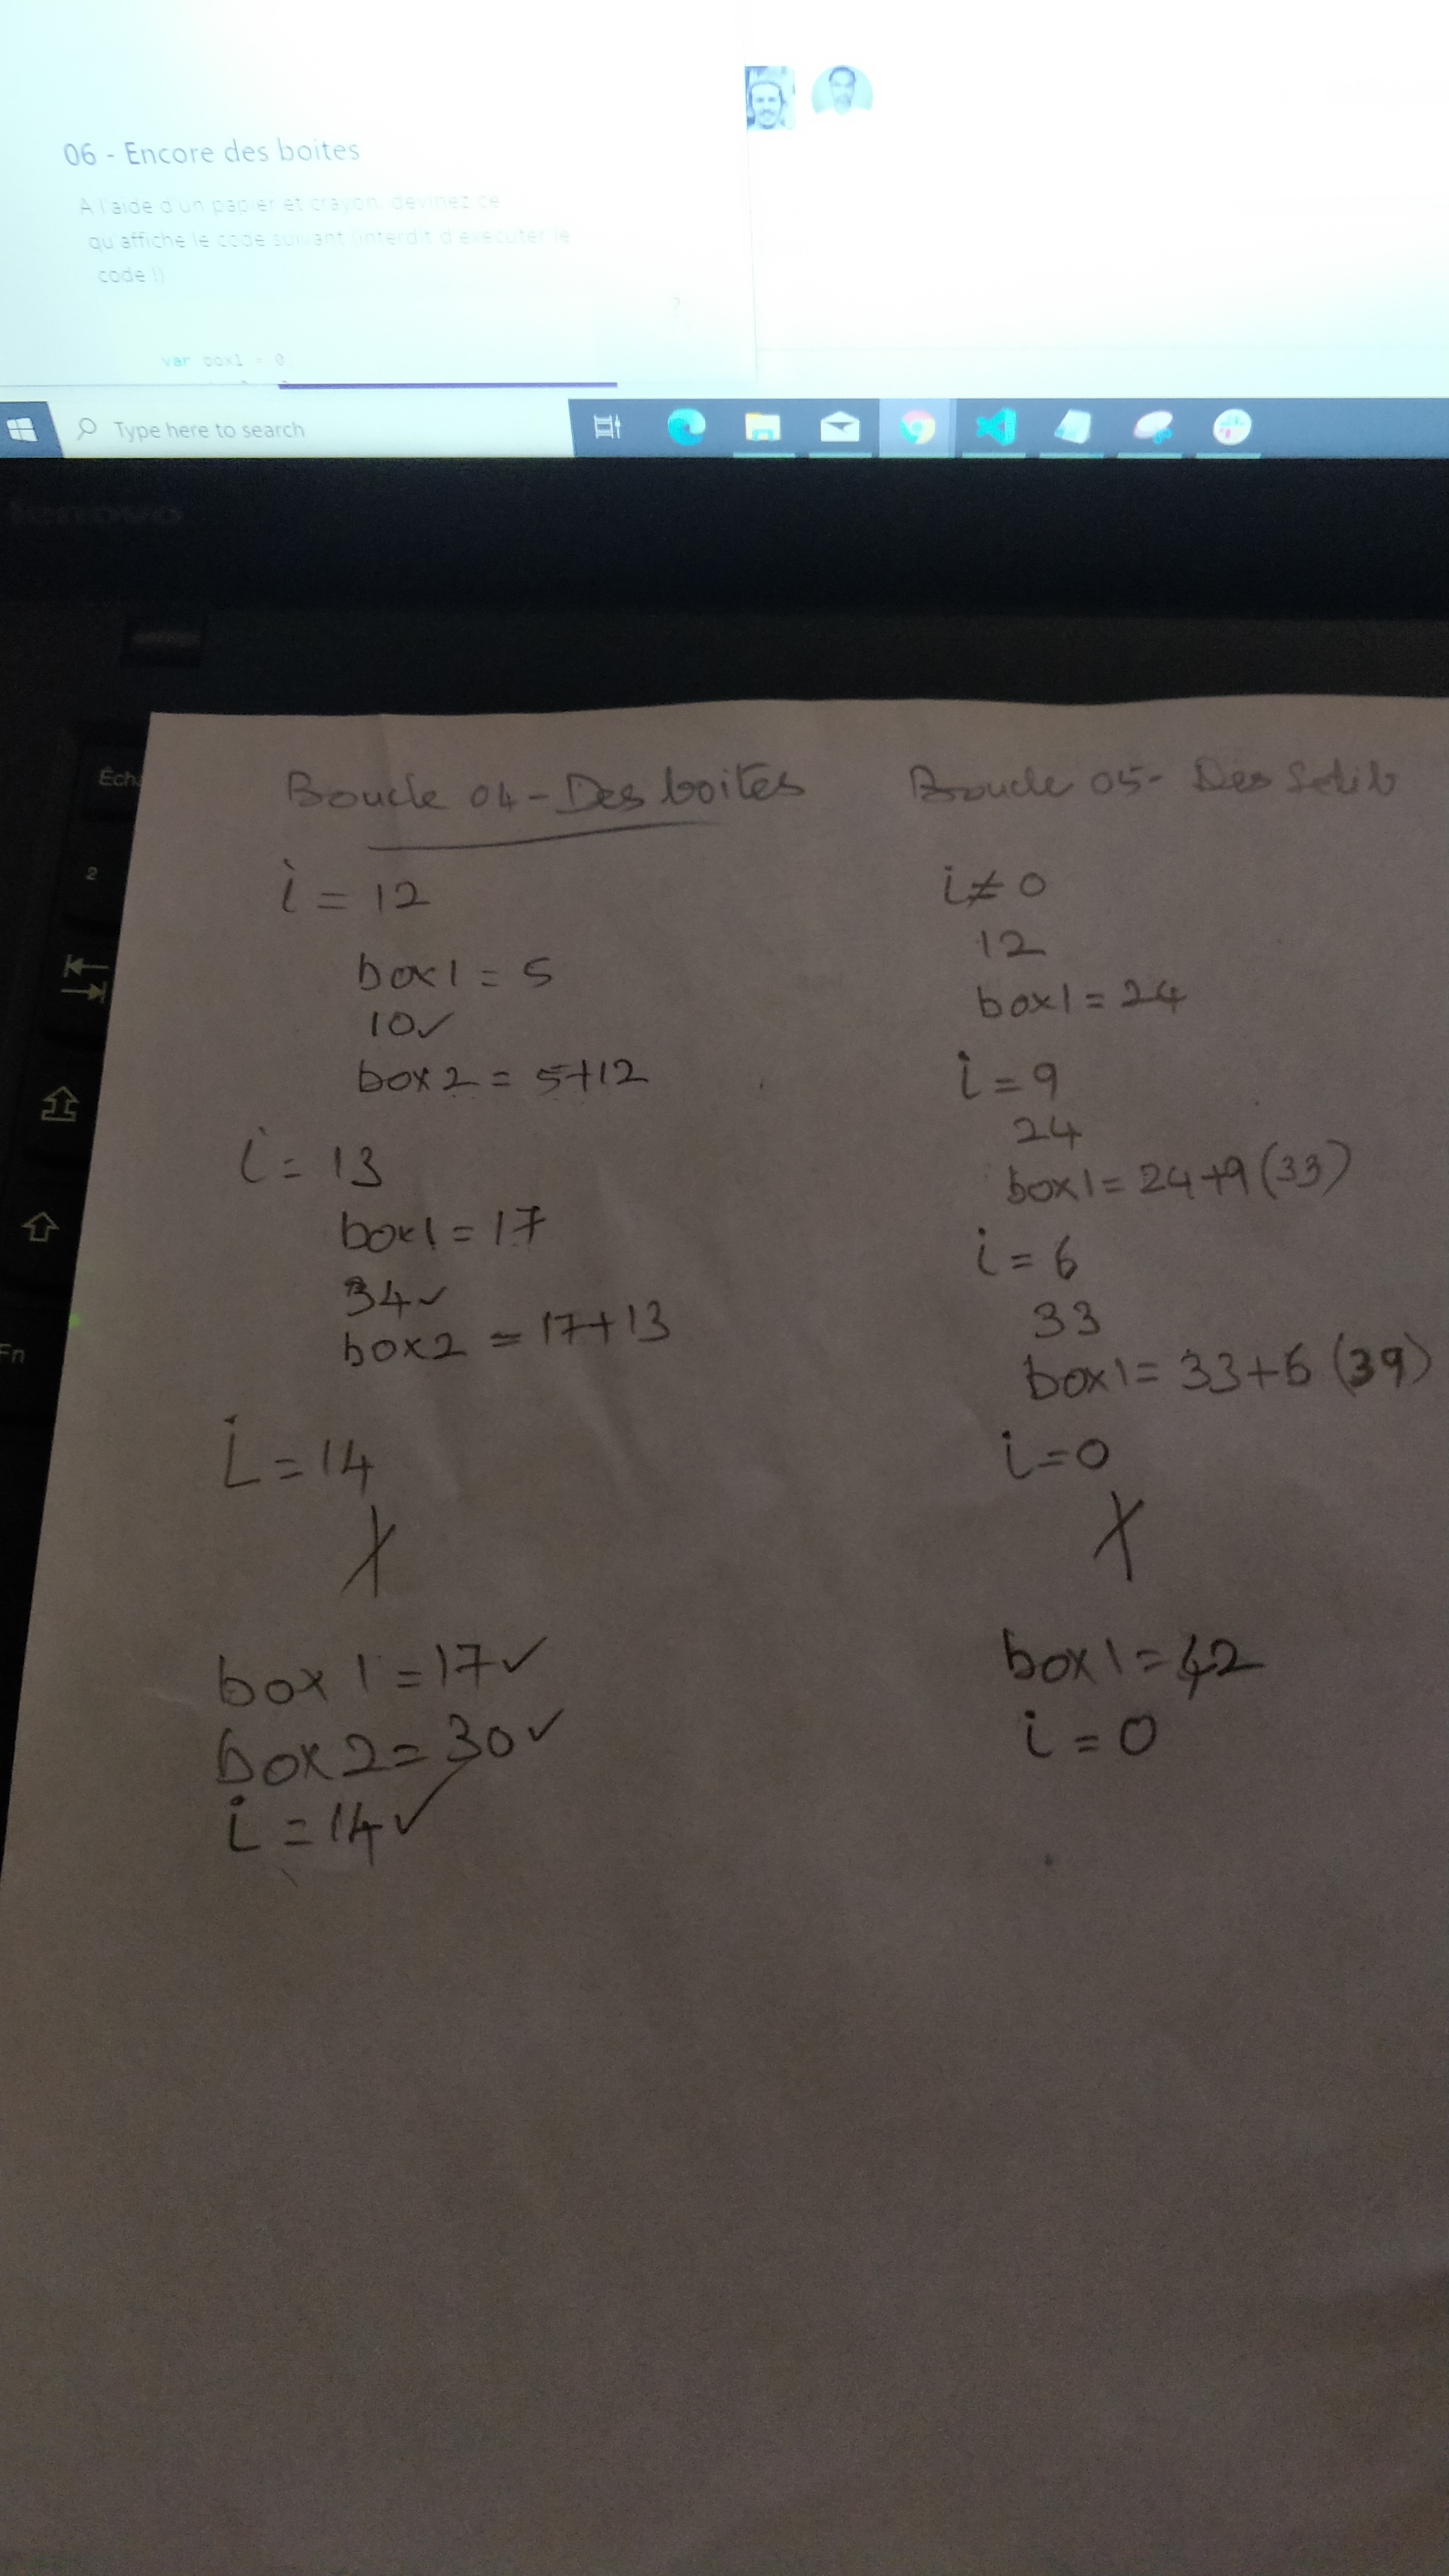 06 - Encore des boites
A l'aide d'un papier et crayon, devinez ce
qu'affiche le code suivant (interdit d'executer le
code !)
?
var box1 = 0
Type here to search
lenovo
Éch
2
Fn
Boucle 04 - Des boites
i = 12
box1 = 5
10✓
box2 = 5+12
i = 13
box1 = 17
34✓
box2 = 17+13
i = 14
X
box1 = 17✓
box2 = 30✓
i = 14✓
Boucle 05 - Des
i ≠ 0
12
box1 = 24
i = 9
24
box1 = 24+9 (33)
i = 6
33
box1 = 33+6 (39)
i = 0
X
box1 = 42
i = 0